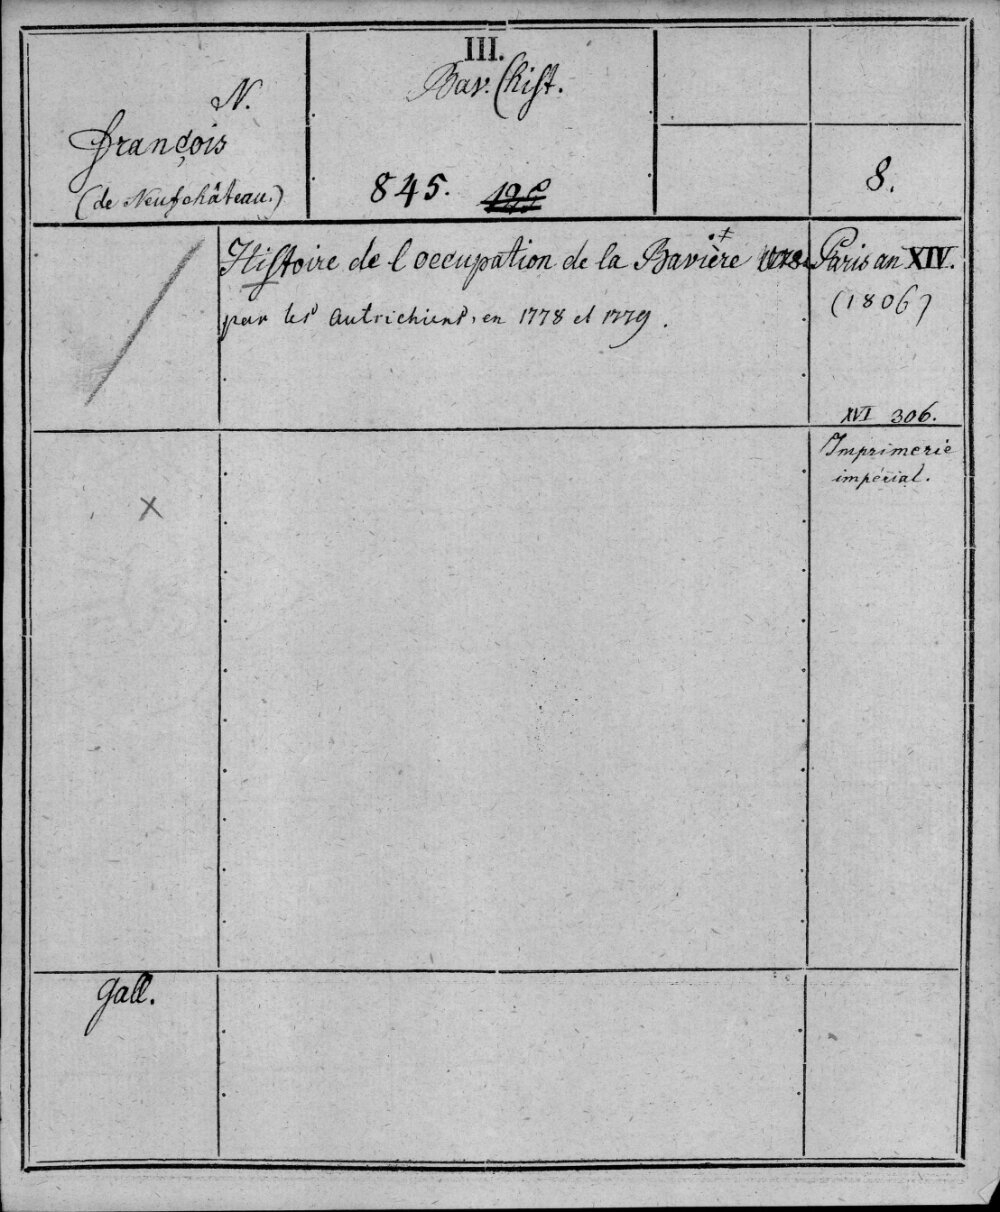 III.
Bav. Hist.
N.
François
(de Neufchâteau.)
845.
8.
Histoire de l'occupation de la Bavière
par les Autrichiens, en 1778 et 1779.
Paris an XIV.
(1806)
XVI 306.
Imprimerie
impérial.
Gall.